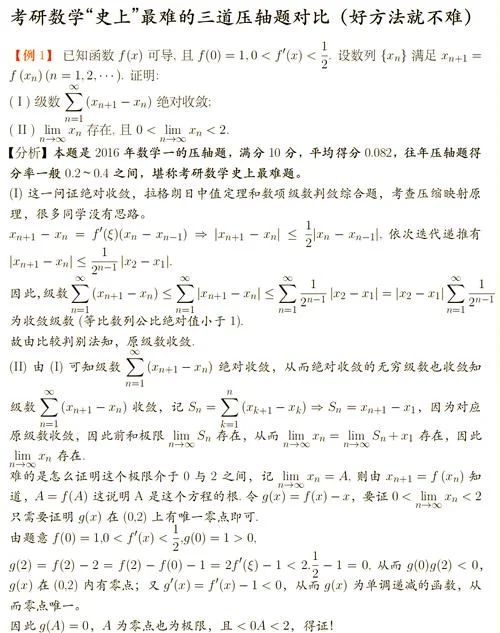 考研数学“史上”最难的三道压轴题对比（好方法就不难）
【例 1】 已知函数 f(x) 可导, 且 f(0) = 1, 0 < f′(x) < 1/2. 设数列 {xₙ} 满足 xₙ₊₁ =
f (xₙ) (n = 1, 2, ⋯). 证明:
( I ) 级数 ∑_{n=1}^{∞} (xₙ₊₁ − xₙ) 绝对收敛;
( II ) lim_{n→∞} xₙ 存在, 且 0 < lim_{n→∞} xₙ < 2.
【分析】本题是 2016 年数学一的压轴题，满分 10 分，平均得分 0.082，往年压轴题得
分率一般 0.2 ~ 0.4 之间，堪称考研数学史上最难题。
(I) 这一问证绝对收敛，拉格朗日中值定理和数项级数判敛综合题，考查压缩映射原
理，很多同学没有思路。
xₙ₊₁ − xₙ = f′(ξ)(xₙ − xₙ₋₁) ⇒ |xₙ₊₁ − xₙ| ≤ 1/2|xₙ − xₙ₋₁|, 依次迭代递推有
|xₙ₊₁ − xₙ| ≤ 1/2ⁿ⁻¹ |x₂ − x₁|.
因此,级数 ∑_{n=1}^{∞} (xₙ₊₁ − xₙ) ≤ ∑_{n=1}^{∞} |xₙ₊₁ − xₙ| ≤ ∑_{n=1}^{∞} 1/2ⁿ⁻¹ |x₂ − x₁| = |x₂ − x₁| ∑_{n=1}^{∞} 1/2ⁿ⁻¹
为收敛级数 (等比数列公比绝对值小于 1).
故由比较判别法知，原级数收敛.
(II) 由 (I) 可知级数 ∑_{n=1}^{∞} (xₙ₊₁ − xₙ) 绝对收敛，从而绝对收敛的无穷级数也收敛知
级数 ∑_{n=1}^{∞} (xₙ₊₁ − xₙ) 收敛，记 Sₙ = ∑_{k=1}^{n} (xₖ₊₁ − xₖ) ⇒ Sₙ = xₙ₊₁ − x₁，因为对应
原级数收敛，因此前和极限 lim_{n→∞} Sₙ 存在，从而 lim_{n→∞} xₙ = lim_{n→∞} Sₙ + x₁ 存在，因此
lim_{n→∞} xₙ 存在.
难的是怎么证明这个极限介于 0 与 2 之间，记 lim_{n→∞} xₙ = A, 则由 xₙ₊₁ = f (xₙ) 知
道，A = f(A) 这说明 A 是这个方程的根. 令 g(x) = f(x) − x，要证 0 < lim_{n→∞} xₙ < 2
只需要证明 g(x) 在 (0,2) 上有唯一零点即可.
由题意 f(0) = 1,0 < f′(x) < 1/2,g(0) = 1 > 0,
g(2) = f(2) − 2 = f(2) − f(0) − 1 = 2f′(ξ) − 1 < 2.1/2 − 1 = 0, 从而 g(0)g(2) < 0,
g(x) 在 (0,2) 内有零点；又 g′(x) = f′(x) − 1 < 0，从而 g(x) 为单调递减的函数，从
而零点唯一。
因此 g(A) = 0，A 为零点也为极限，且 < 0A < 2，得证！